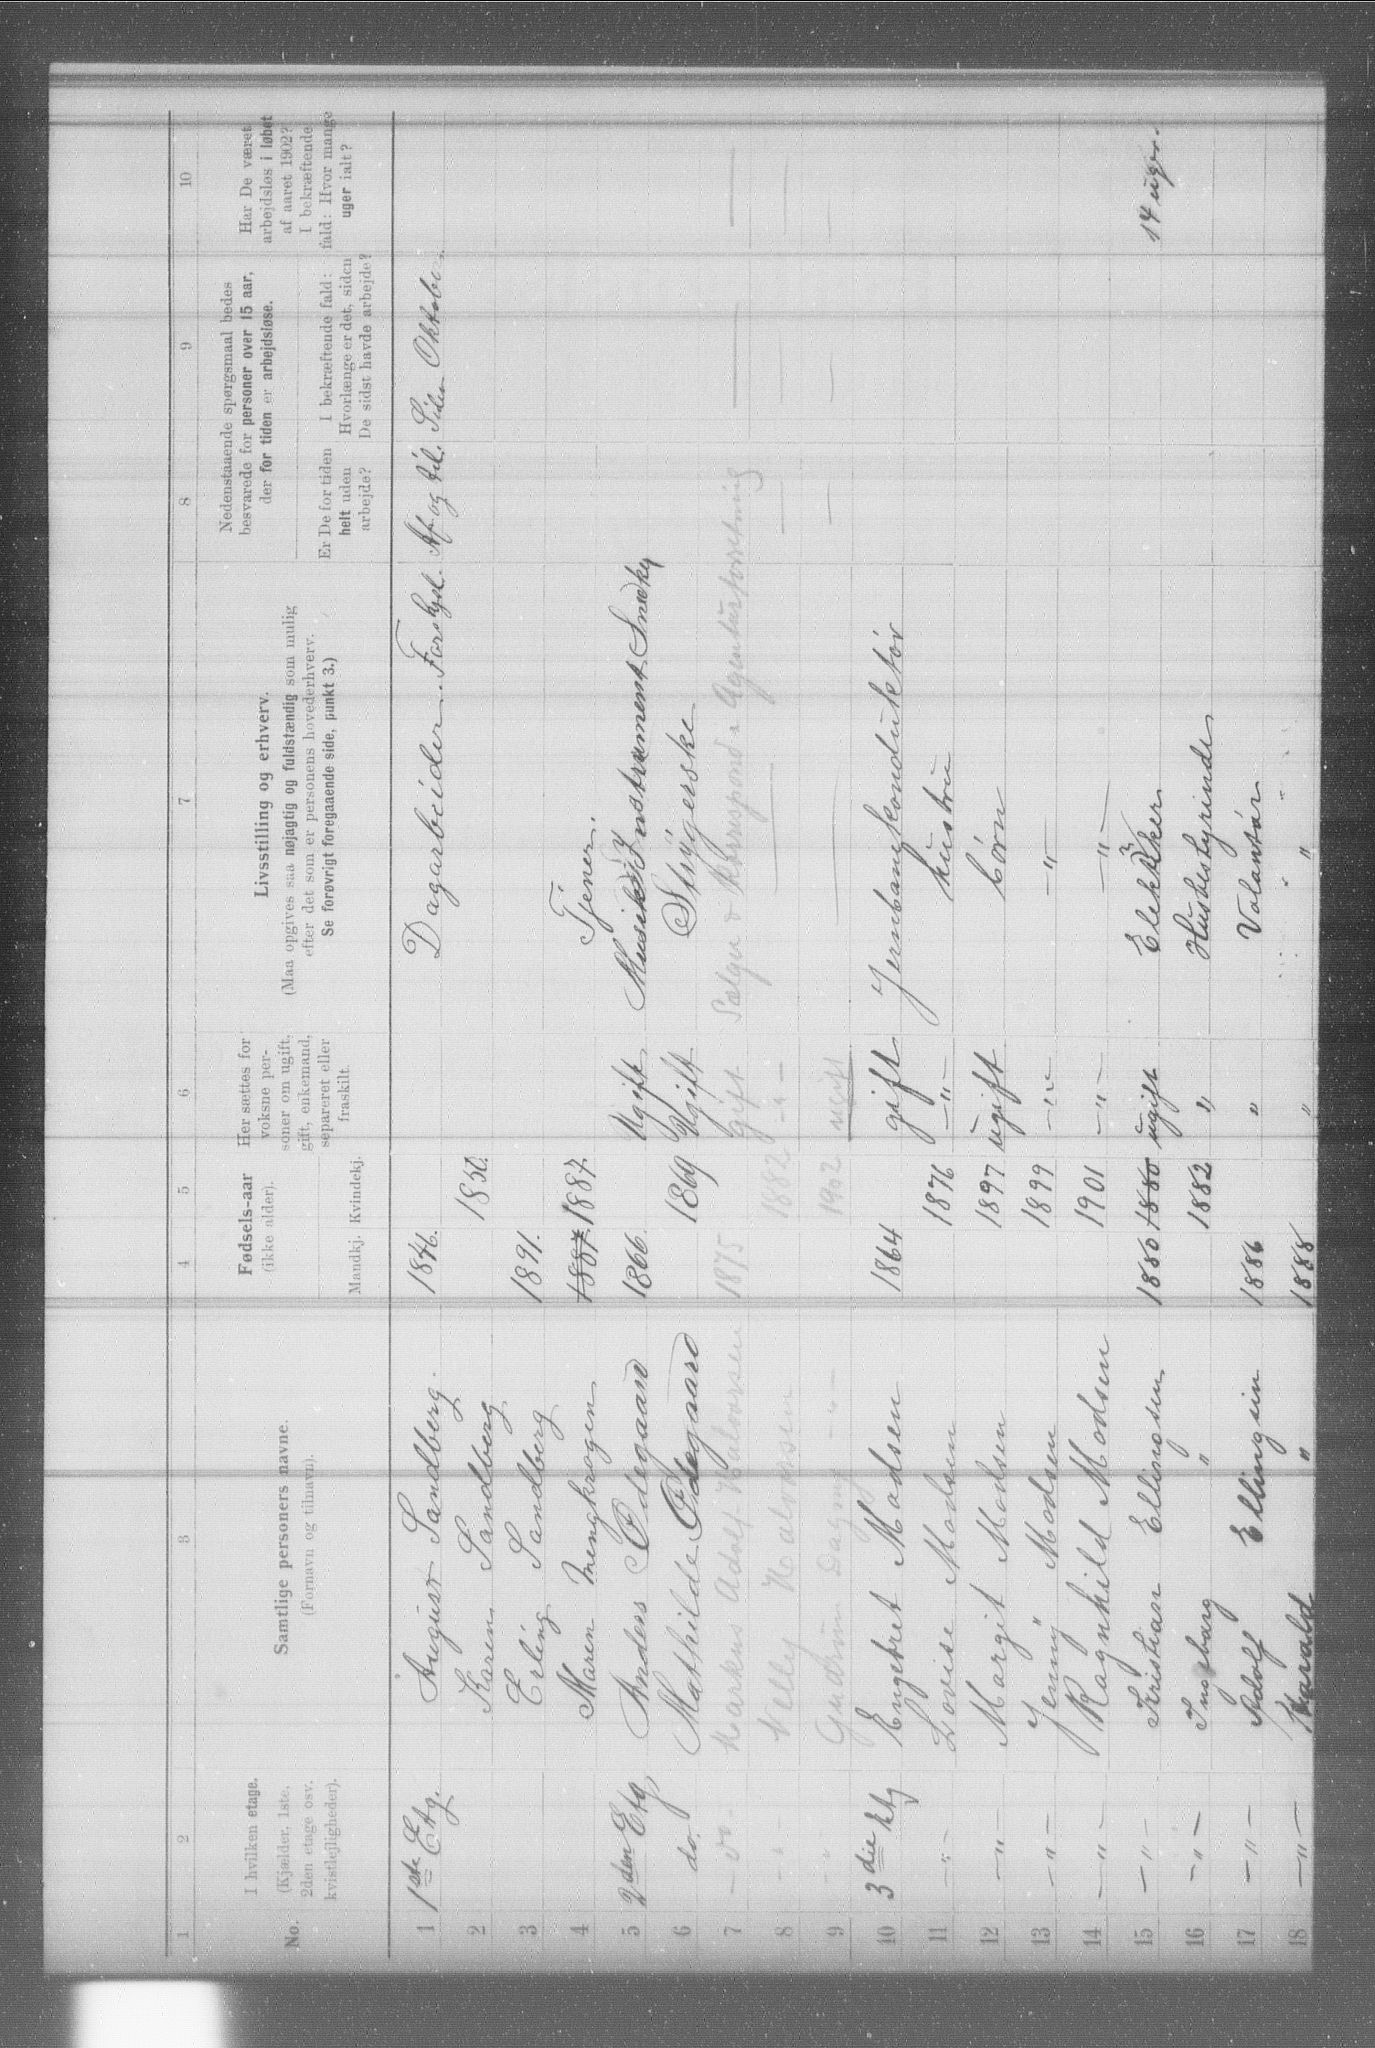 1 2 3 4 5 6 7 8 9 10
No.
I hvilken etage.
(Kjælder, 1ste.
2den etage osv.
kvistlejligheder).
Samtlige personers navne.
(Fornavn og tilnavn).
Fødsels-aar
(ikke alder).
Mandkj. Kvindekj.
Her sættes for
voksne per-
soner om ugift,
gift, enkemand,
separeret eller
fraskilt.
Livsstilling og erhverv.
(Maa opgives saa nøjagtig og fuldstændig som mulig
efter det som er personens hovederhverv.
Se forøvrigt foregaaende side, punkt 3.)
Nedenstaaende spørgsmaal bedes
besvarede for personer over 15 aar,
der for tiden er arbejdsløse.
Er De for tiden
helt uden
arbejde?
I bekræftende fald:
Hvorlænge er det, siden
De sidst havde arbejde?
Har De været
arbejdsløs i løbet
af aaret 1902?
I bekræftende
fald: Hvor mange
uger ialt?
1 1ste Etg. August Sandberg. 1846. Dagarbeider. Forskjel. Af og til. Siden Oktober.
2 Karen Sandberg 1850.
3 Erling Sandberg 1891.
4 Maren Mengkrogen 1887 1887. Tjener.
5 2den Etg, Anders Ødegaard 1866. Ugift. Musik Instrument Snedky
6 do. Mathilde Ødegaard 1869 Ugift Strygerske
7 — do - Markus Adolf Halvorsen 1875 Gift Sælger & Korrespond. Agenturforretning — —
8 - " - Nelly Halvorsen 1882 - " - — — — —
9 - " - Gudrun Dagny - " - 1902 ugift — — — —
10 3die Etg Engebret Madsen 1864 gift Jernbanekonduktør
11 - " - Lovise Madsen 1876 - " - hustru
12 - " - Margit Madsen 1897 ugift børn
13 - " - Jenny Madsen 1899 - " - - " -
14 - " - Ragnhild Madsen 1901 - " - - " -
15 - " - Kristian Ellingsen 1880 1880 ugift 14 uger.
16 - " - Ingeborg " 1882 " Husbestyrinde
17 - " - Adolf Ellingsen 1886 " Volantør
18 - " - Harald " 1888 " "